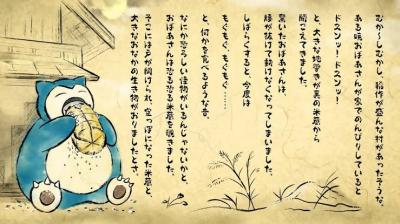 むか〜しむかし、稲作が盛んな村があったそうな。
ある晩おばあさんが家でのんびりしていると
ドスンッ！ドスンッ！
と、大きな地響きが裏の米倉から
聞こえてきました。
驚いたおばあさんは、
腰が抜けて動けなくなってしまいました。
しばらくすると、今度は
もぐもぐ、もぐもぐ……
と、何かを食べるような音。
なにか恐ろしい怪物がいるんじゃないかと、
おばあさんは恐る恐る米倉を覗きました。
そこには戸が開けられ、空っぽになった米倉と、
大きなおなかの生き物がおりましたとさ。